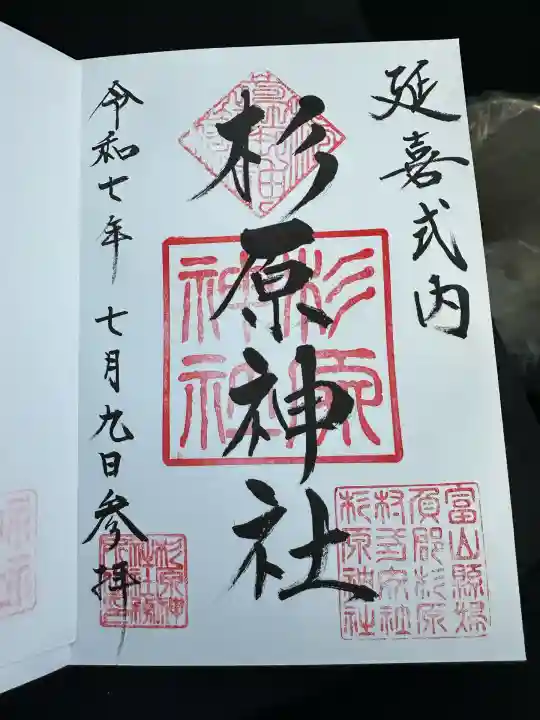 延喜式内
杉原神社
令和七年 七月九日参拝
杉原
神社
富山縣婦
負郡杉原
村
杉原神社
杉原神
社社務